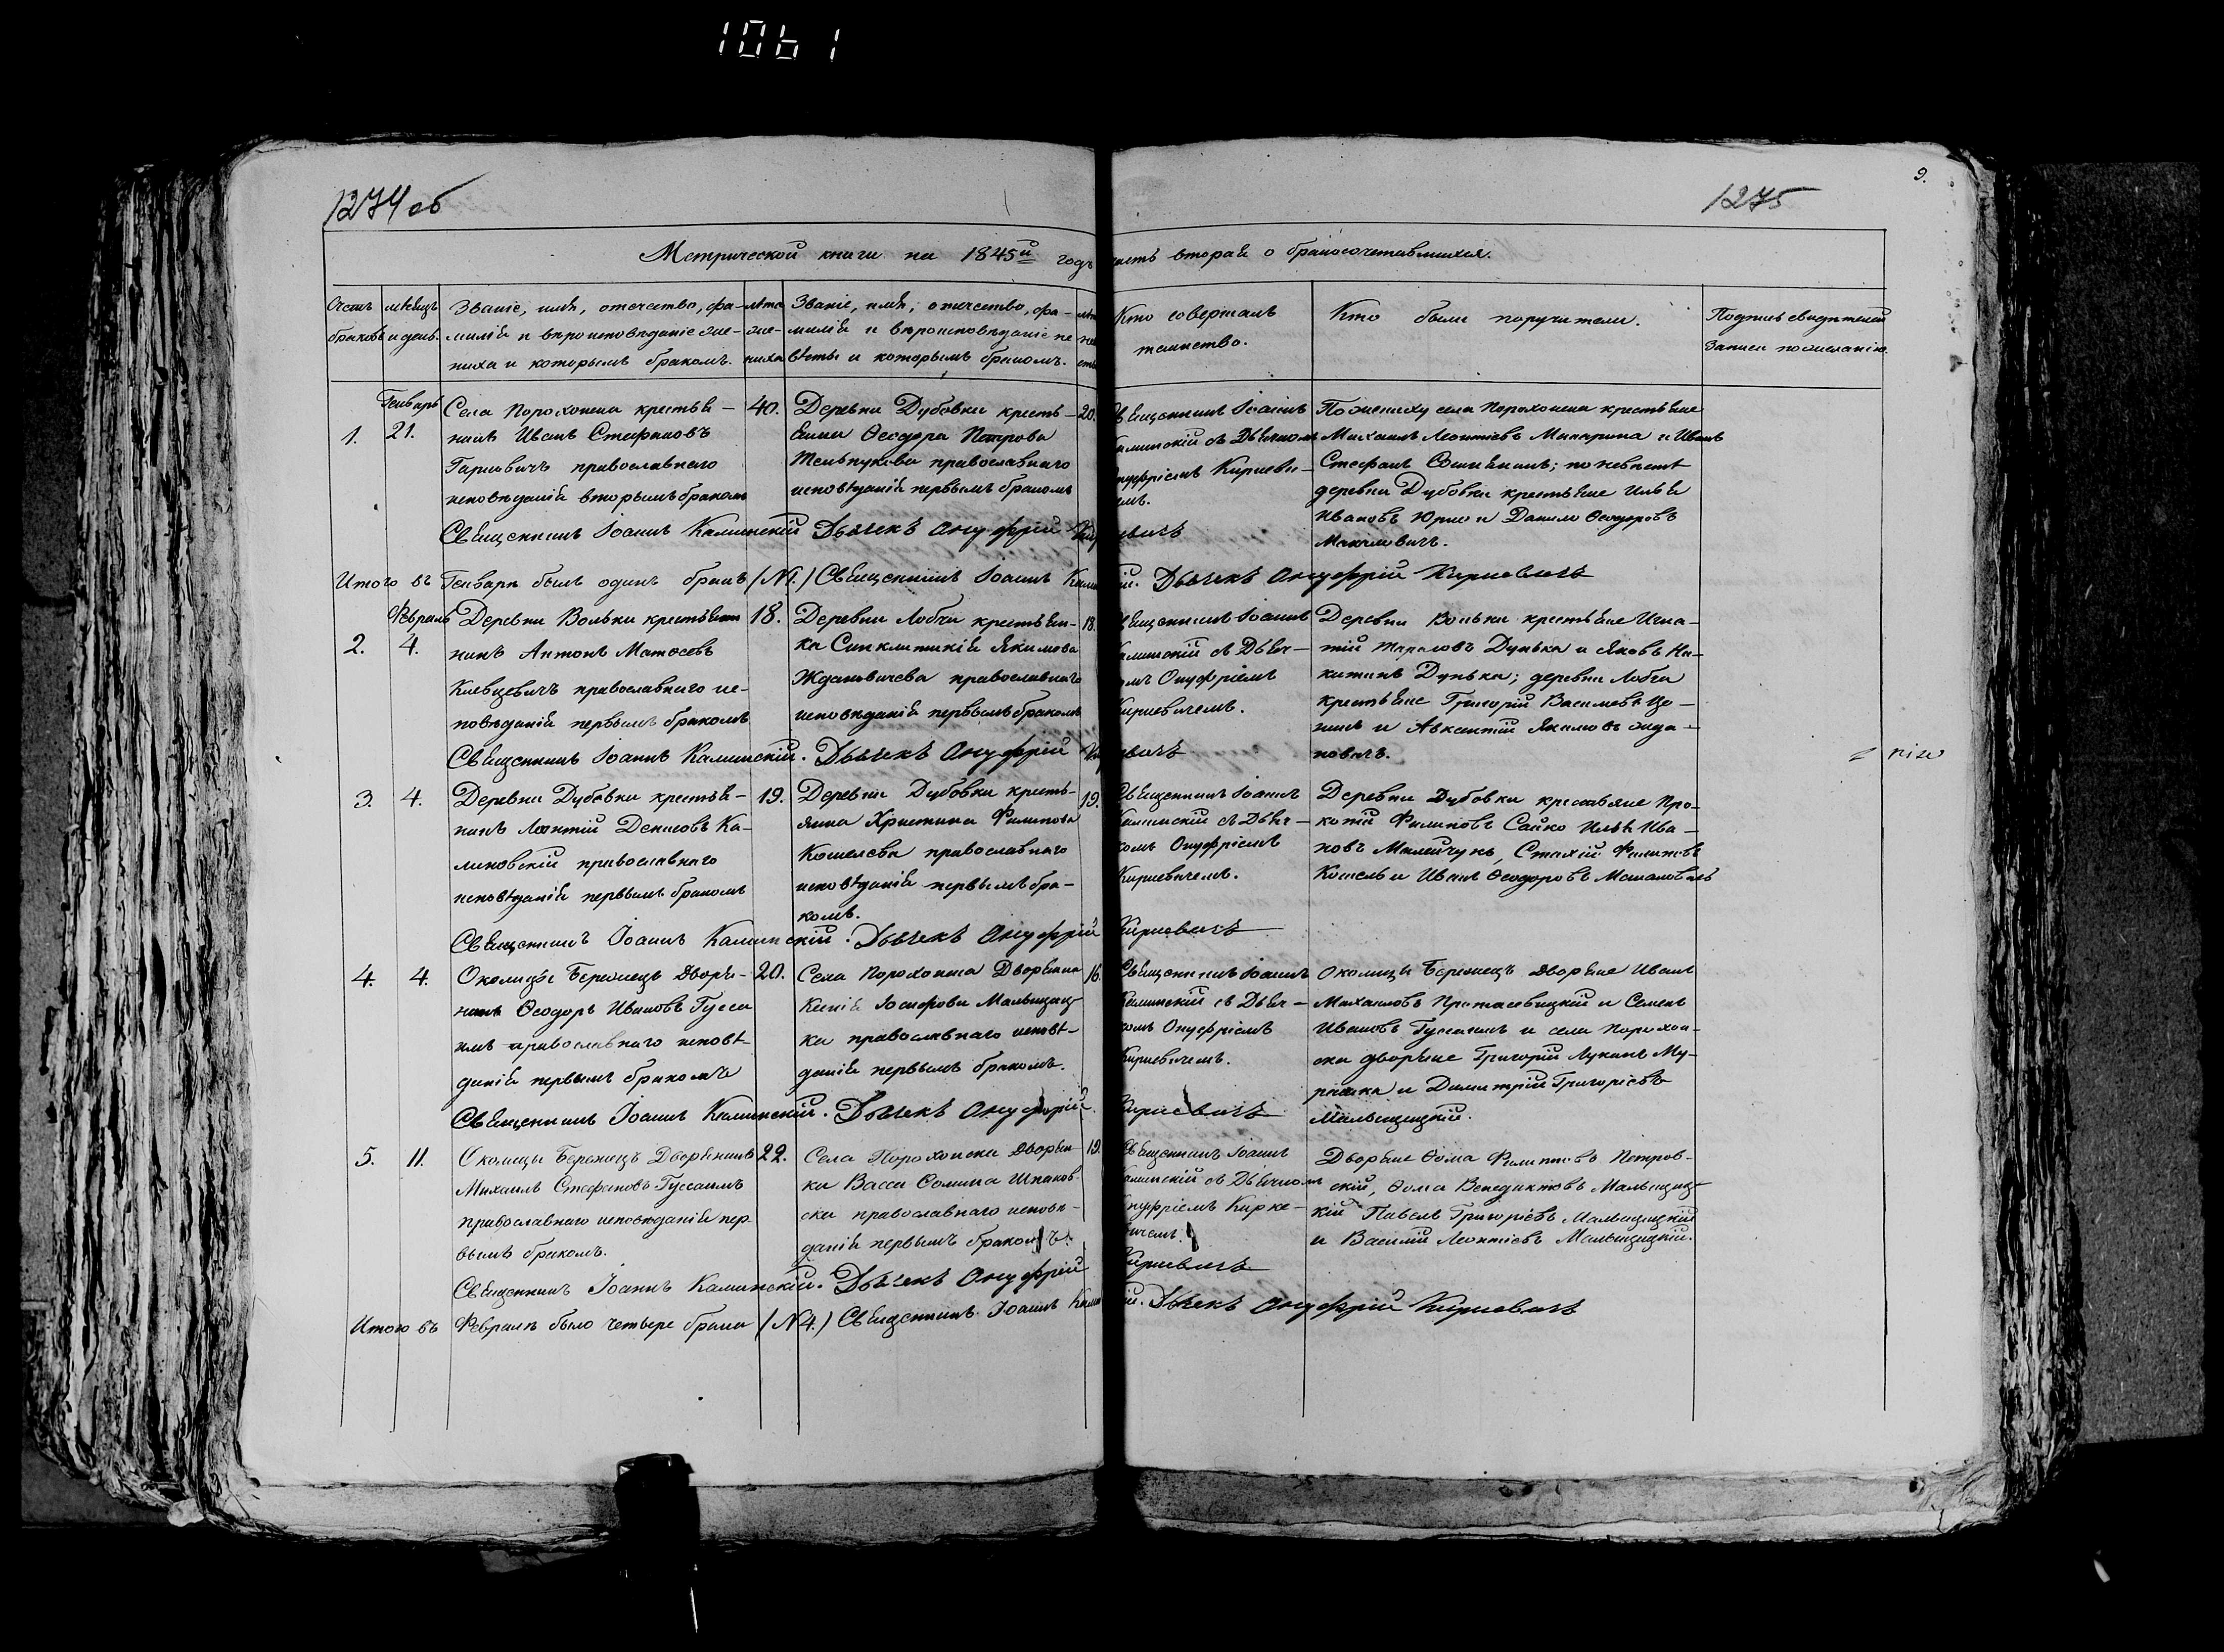 1061
1274 об
1275
9.
Метрической книги на 1845й годъ часть вторая о бракосочетавшихся.
Счетъ браковъ
мѣсяцъ и день.
Званіе, имя, отечество, фа-
милія и вѣроисповѣданіе же-
ниха и которымъ бракомъ.
лѣта
же-
ниха
Званіе, имя, отечество, фа-
милія и вѣроисповѣданіе не
вѣсты и которымъ бракомъ.
Кто совершалъ
таинство.
Кто были поручители.
Подпись свидѣтелей
записи по желанію.
1.
Генварь
21.
Села Порохонска крестья-
нинъ Иванъ Стефановъ
православнаго
исповѣданія вторымъ бракомъ
40.
Деревни Дубовки кресть-
янка Ѳеодора Петрова
православнаго
исповѣданія первымъ бракомъ
20.
Священникъ Іоаннъ
Калинскій съ Дьячкомъ
Онуфріемъ Киркеви-
емъ.
По жениху села Порохонска крестьяне
Михаилъ Леонтіевъ и Иванъ
Стефан по невѣстѣ
деревни Дубовки крестьяне Илья
Ивановъ Юрко и Данило Ѳеодоровъ
Священникъ Іоаннъ Калинскій Дьячекъ Онуфрій Киркевичъ
Итого въ Генварѣ былъ одинъ бракъ (№1.) Священникъ Іоаннъ Калинскій. Дьячекъ Онуфрій Киркевичъ
2.
Февраль
4.
Деревни Вольки крестьян
нинъ Антонъ Матѳеевъ
Клевцевичъ православнаго ис-
повѣданія первымъ бракомъ
18.
Деревни Лобчи крестьян-
ка Синклитикія Якимова
Ждановичева православнаго
исповѣданія первымъ бракомъ
18.
Священникъ Іоаннъ
Калинскій съ Дьяч-
комъ Онуфріемъ
Киркевичемъ.
Деревни Вольки крестьяне Игна-
тій Тарасовъ Дунька и Яковъ Ни-
китинъ Дунька; деревни Лобчи
крестьяне Григорій Васильевъ
и Авксентій Якимовъ Жда-
новичъ.
Священникъ Іоаннъ Калинскій. Дьячекъ Онуфрій Киркевичъ
3.
4.
Деревни Дубовки крестья-
нинъ Леонтій Денисовъ Ка-
линовскій православнаго
исповѣданія первымъ бракомъ
19.
Деревни Дубовки кресть-
янка Христина Филипова
Кошелева православнаго
исповѣданія первымъ бра-
комъ.
19.
Священникъ Іоаннъ
Калинскій съ Дьяч-
комъ Онуфріемъ
Киркевичемъ.
Деревни Дубовки крестьяне Про-
копій Филиповъ Сайко Илья Ива-
новъ Малейчукъ, Стахій Филиповъ
Кошель и Иванъ Ѳеодоровъ
Священникъ Іоаннъ Калинскій. Дьячекъ Онуфрій Киркевичъ
4.
4.
Околицы Бережецъ Дворя-
нинъ Ѳеодоръ Ивановъ Гусса
имъ православнаго исповѣ-
данія первымъ бракомъ
20.
Села Порохонска Дворянка
Ксенія Іосифова Мальщиц-
ка православнаго исповѣ-
данія первымъ бракомъ.
16.
Священникъ Іоаннъ
Калинскій съ Дьяч-
комъ Онуфріемъ
Киркевичемъ.
Околицы Бережецъ Дворяне Иванъ
Михаиловъ Протасевицкій и Семенъ
Ивановъ Гуссаимъ и села Порохон-
ска дворяне Григорій Лукинъ Му-
рашка и Димитрій Григоріевъ
Мальщицкій.
Священникъ Іоаннъ Калинскій. Дьячекъ Онуфрій Киркевичъ
5.
11.
Околицы Бережецъ Дворянинъ
Михаилъ Стефановъ Гуссаимъ
православнаго исповѣданія пер-
вымъ бракомъ.
22.
Села Порохонска Дворян-
ка Васса Шпаков-
ска православнаго исповѣ-
данія первымъ бракомъ.
19.
Священникъ Іоаннъ
Калинскій съ Дьячкомъ
Онуфріемъ Кирке-
вичемъ.
Дворяне Ѳома Филиповъ Петров-
скій, Ѳома Венедиктовъ Мальщиц-
кій Павелъ Григоріевъ Мальщицкій
и Василій Леонтіевъ Мальщицкій.
Священникъ Іоаннъ Калинскій. Дьячекъ Онуфрій Киркевичъ
Итого въ Февралѣ было четыре брака (№4.) Священникъ Іоаннъ Калинскій. Дьячекъ Онуфрій Киркевичъ